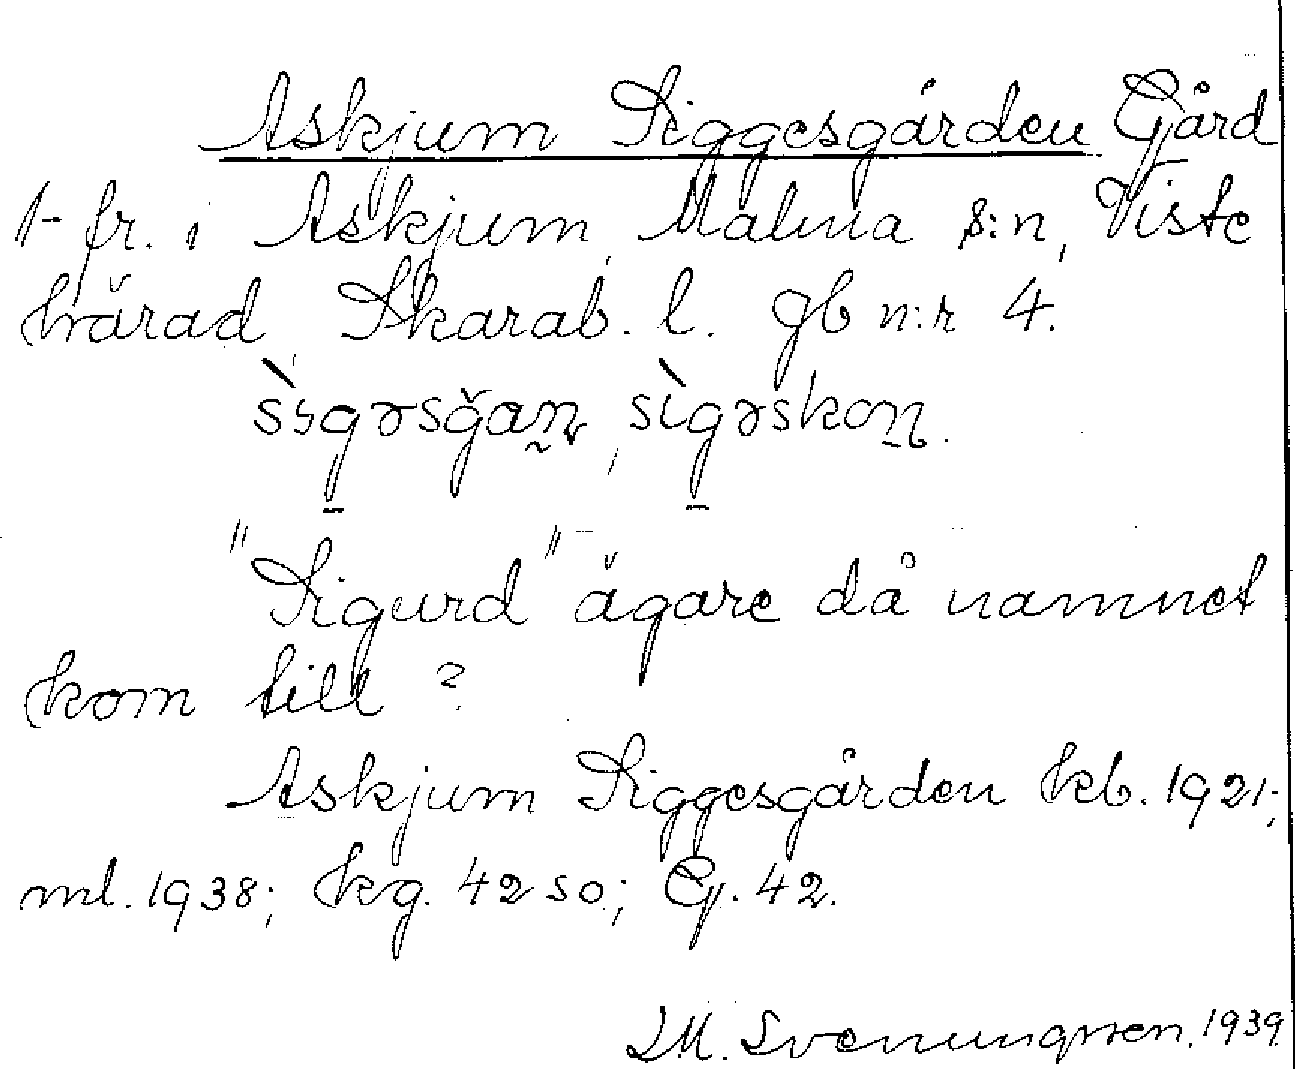 Askjum Siggesgården Gård
1- fr. i Askjum, Malma s:n, Viste
härad, Skarab. l. gb n:r 4.
sìgəsğan, sìgəskon.
"Sigurd" ägare då namnet
kom till?
Askjum Siggesgården kb. 1921-;
ml. 1938; kg. 42 so; Ej. 42.
I.M. Svenungsson. 1939